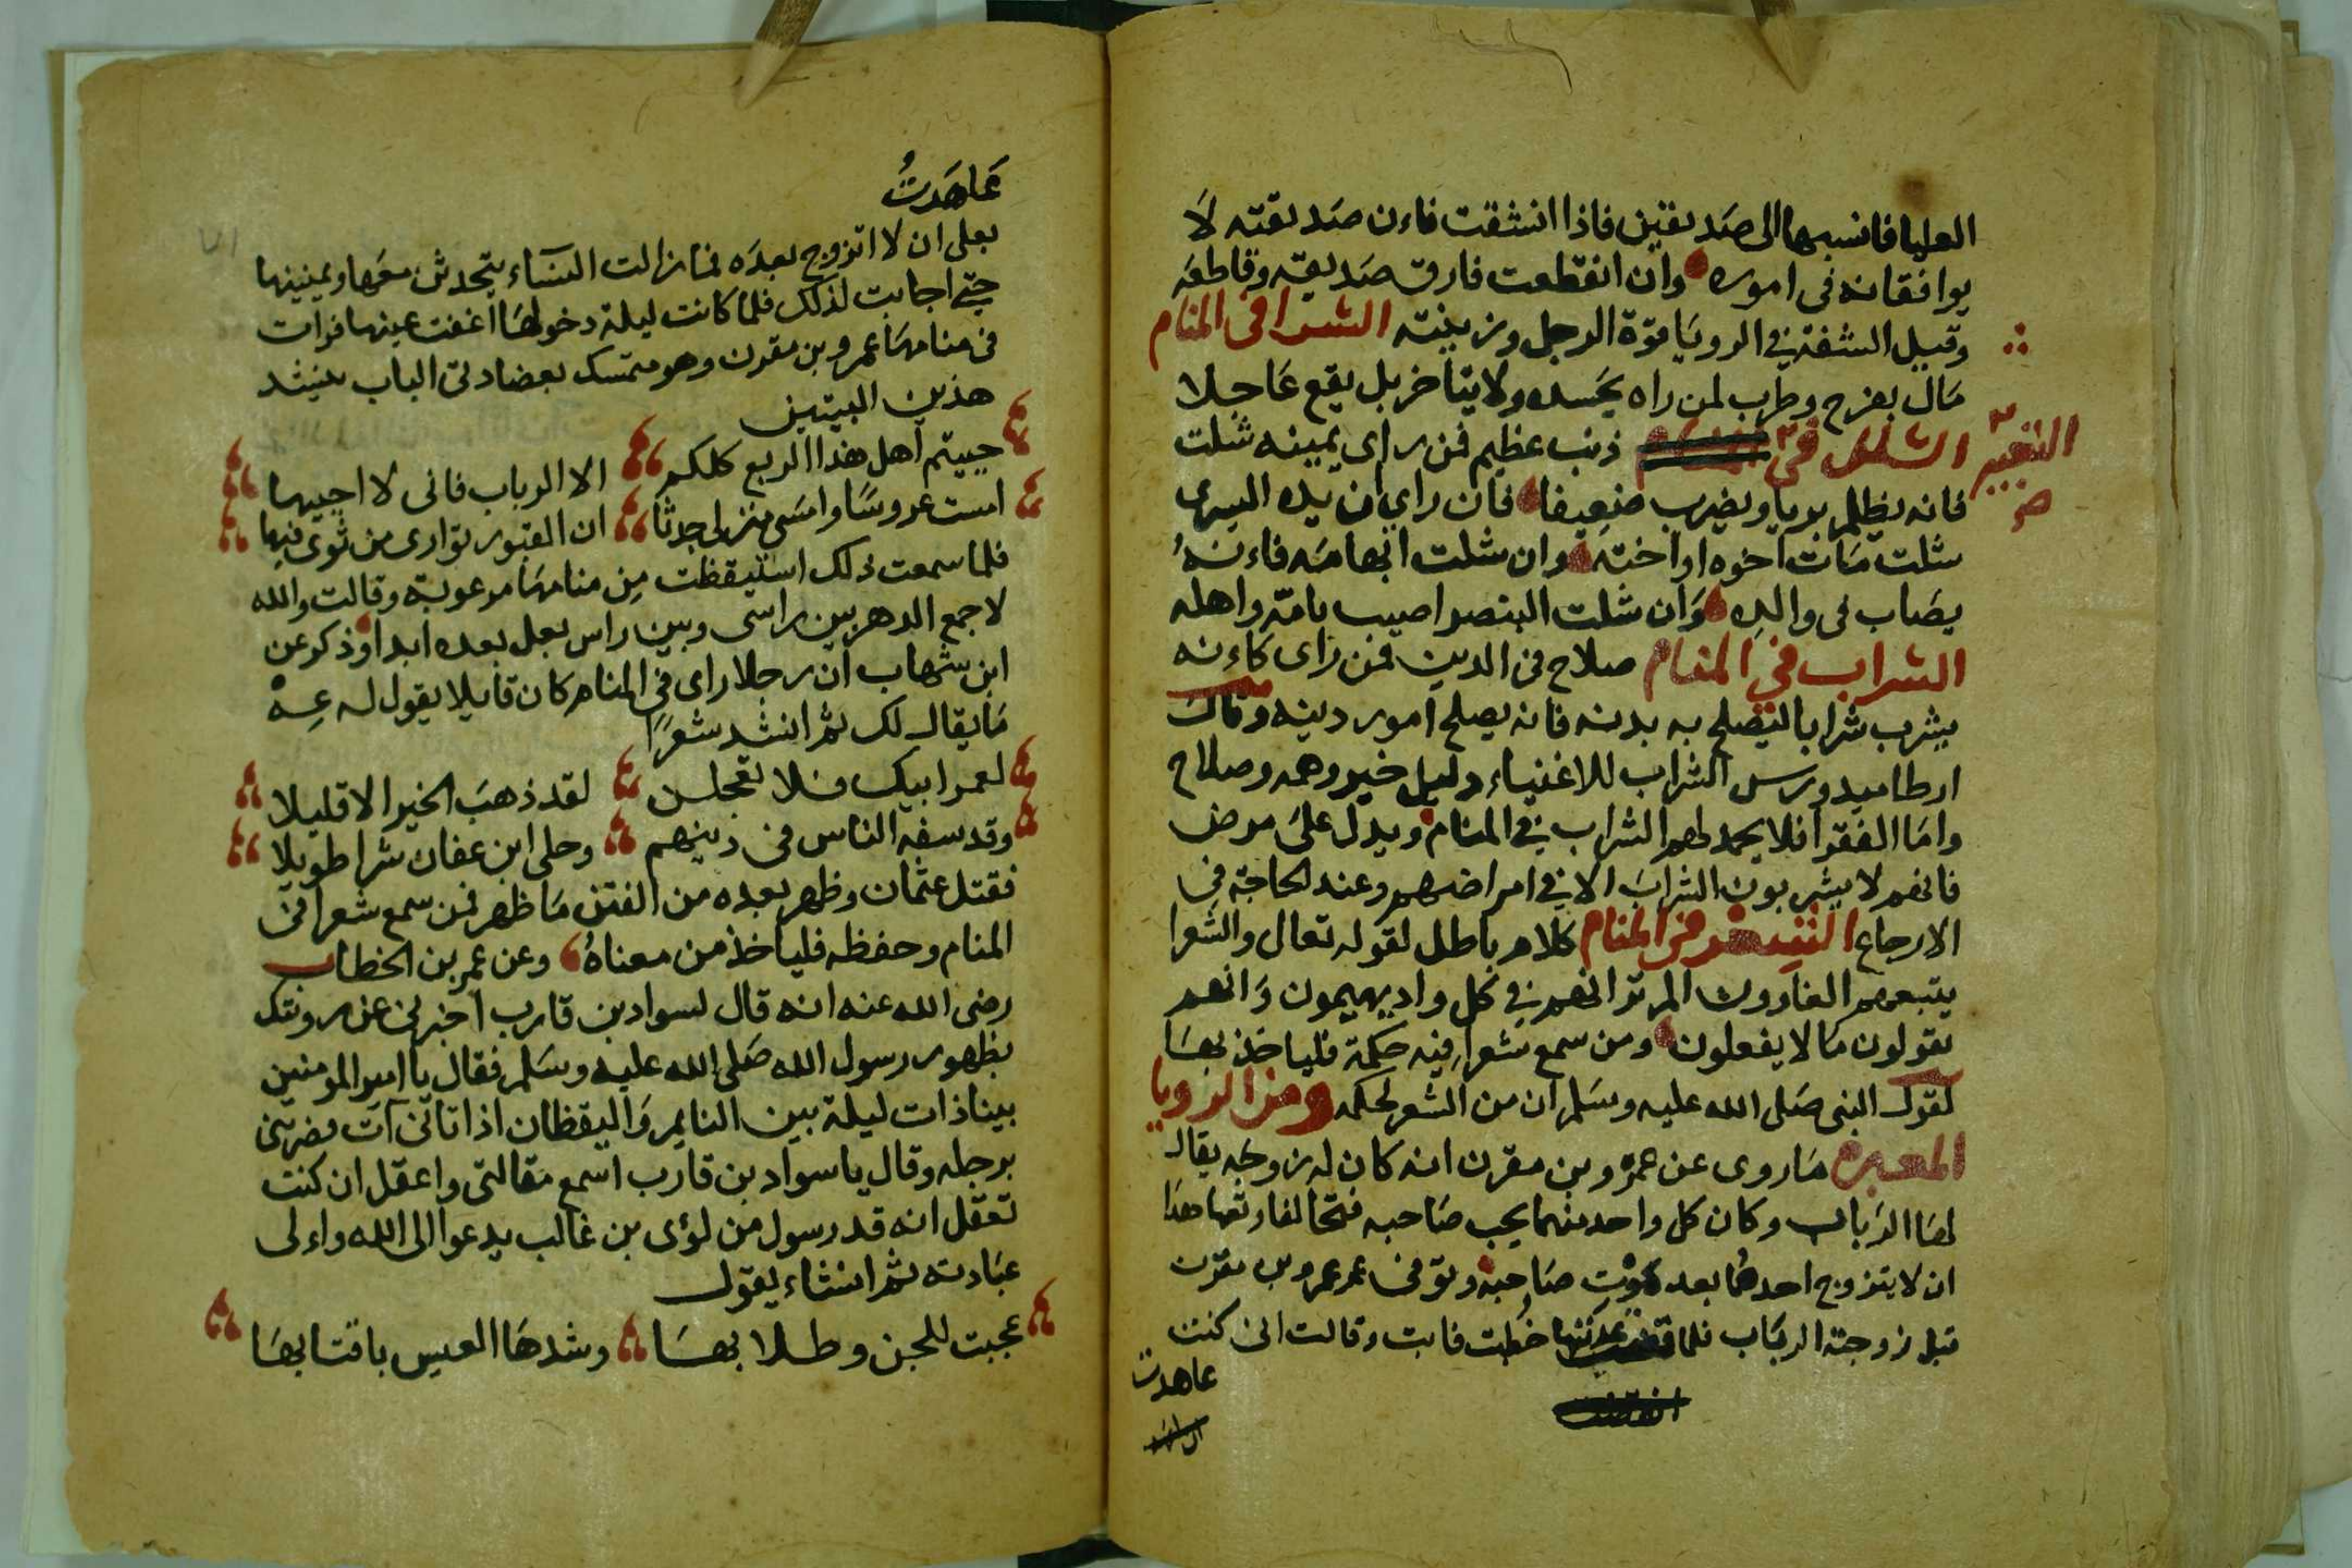 العليا فانسبهما الى صديقين فاذا انشقت فاءن صديقته لا
يوافقانه فى اموره وان انقطعت فارق صديقه وقاطعه
وقيل الشفة في الرويا قوة الرجل وزينته الشرا فى المنام
مال بفرح وطرب لمن راه بجسده ولا يتاخر بل يقع عاجلا
الشلل فى ذنب عظيم فمن راى يمينه شلت
التعبير
صح
فانه يظلم بريا ويضرب ضعيفا فان راى ان يده اليسرى
شلت مات اخوه او اخته وان شلت ابهامه فاءنه
يصاب فى والده وان شلت البنصر اصيب بامه واهله
الشراب في المنام صلاح فى الدين فمن راى كاءنه
يشرب شرابا ليصلح به بدنه فانه يصلح امور دينه وقال
ارطاميدورس الشراب للاغنياء دليل خير وهم وصلاح
واما الفقرا فلا يحمد لهم الشراب في المنام ويدل على مرض
فانهم لا يشربون الشراب الا في امراضهم وعند الحاجة في
الارجاع الشعر فى المنام كلام باطل لقوله تعالى والشعرا
يتبعهم الغاوون الم تر انهم في كل واد يهيمون وانهم
يقولون ما لا يفعلون ومن سمع شعرا فيه حكمة فلياخذ بها
لقول النبى صلى الله عليه وسلم ان من الشعر لحكمه ومن الرويا
المعبره ما روى عن عمرو بن مقرن انه كان له زوجه يقال
لها الرباب وكان كل واحد منهما يحب صاحبه فتحالفا وتعاهدا
ان لا يتزوج احدهما بعد موت صاحبه وتوفى عمرو بن مقرن
قبل زوجته الرباب فلما عدتها خطبت فابت وقالت انى كنت
عاهدت
عاهدت
بعلى ان لا اتزوج بعده فما زالت النساء يتحدثن معها ويمنينها
حتى اجابت لذلك فلما كانت ليلة دخولها اغفت عينها فرات
فى منامها عمرو بن مقرن وهو متمسك بعضادتى الباب ينشد
هذين البيتين
حييتم اهل هذا الربع كلكم الا الرباب فانى لا احييها
امست عروسا وامسى منزلى جدثا ان القبور توارى من ثوى فيها
فلما سمعت ذلك استيقظت من منامها مرعوبة وقالت والله
لا جمع الدهر بين راسى وبين راس بعل بعده ابدا وذكر عن
ابن شهاب ان رجلا راى في المنام كان قايلا يقول له عه
ما يقال لك ثم انشد شعرا
لعمر ابيك فلا تعجلن لقد ذهب الخير الا قليلا
وقد سفه الناس فى دينهم وخلى ابن عفان شرا طويلا
فقتل عثمان وظهر بعده من الفتن ما ظهر فمن سمع شعرا فى
المنام وحفظه فلياخذ من معناه وعن عمر بن الخطاب
رضى الله عنه انه قال لسواد بن قارب اخبرنى عن رويتك
بظهور رسول الله صلى الله عليه وسلم فقال يا امير المومنين
بينا ذات ليلة بين النايم واليقظان اذ اتانى آت فضربنى
برجله وقال يا سواد بن قارب اسمع مقالتى واعقل ان كنت
تعقل انه قد رسول من لؤى بن غالب يدعوا الى الله واءلى
عبادته ثم انشاء يقول
عجبت للجن وطلابها وشدها العيس باقتابها